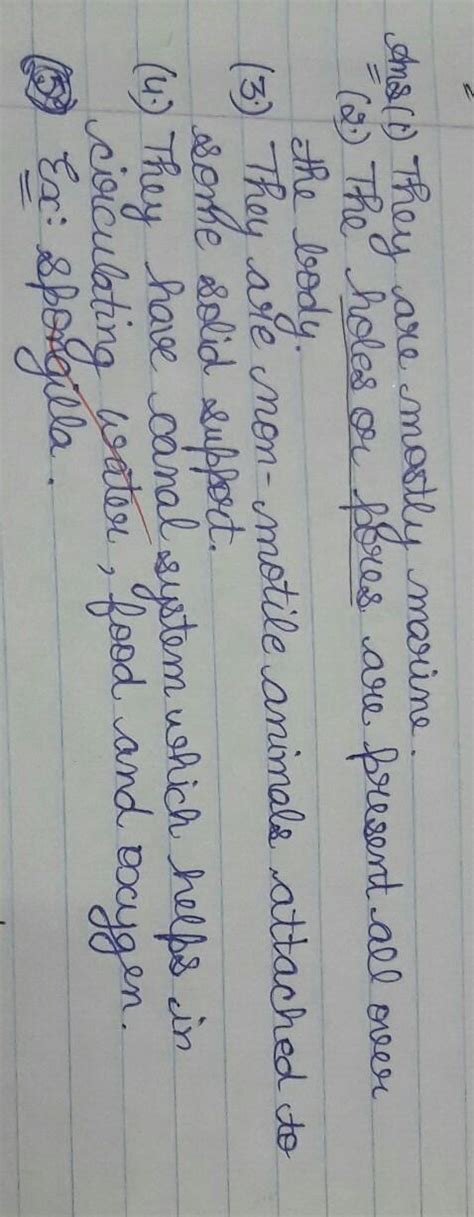 Ans (1.) They are mostly marine.
(2.) The holes or pores are present all over
the body.
(3.) They are non-motile animals attached to
some solid support.
(4.) They have canal system which helps in
circulating water, food and oxygen.
(5.) Ex: Spongilla.